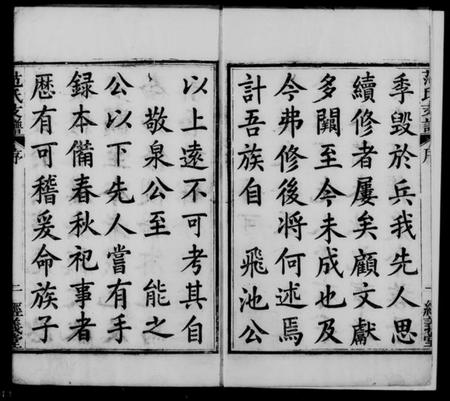 季毀於兵我先人思
續修者屢矣顧文獻
多闕至今未成也及
今弗修後將何述焉
計吾族自 飛池公
以上遠不可考其自
敬泉公至 能之
公以下先人嘗有手
録本備春秋祀事者
歷有可稽爰命族子
范氏支譜 序 二 經義堂